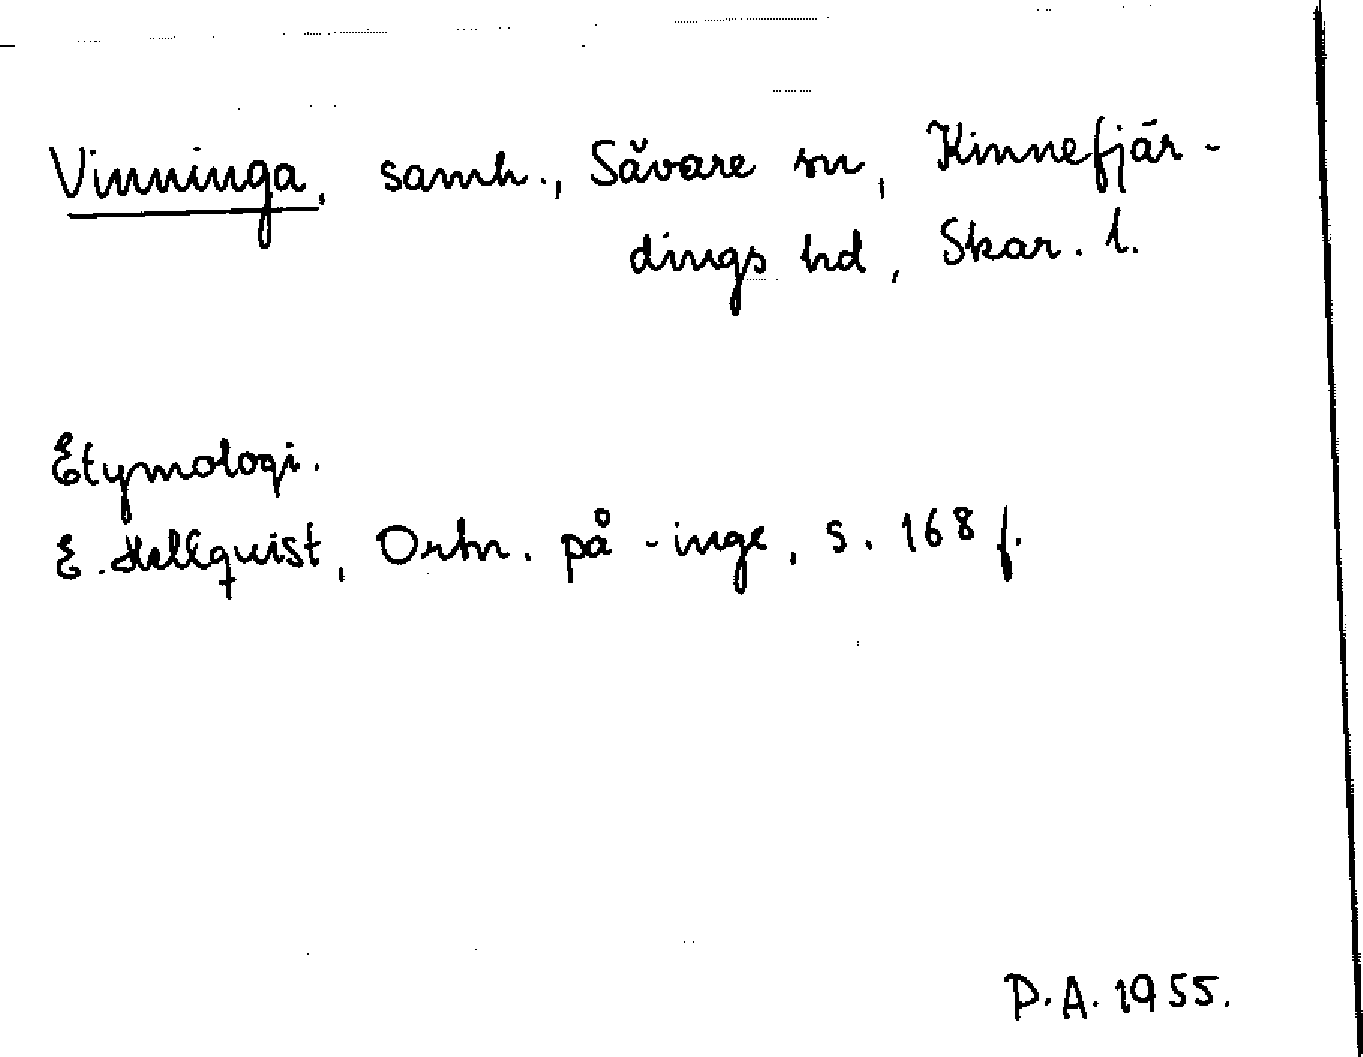 Vinninga, samh., Sävare sn, Kinnefjär-
dings hd, Skar. l.
Etymologi.
E. Hellquist, Ortn. på -inge, s. 168 f.
P.A. 1955.